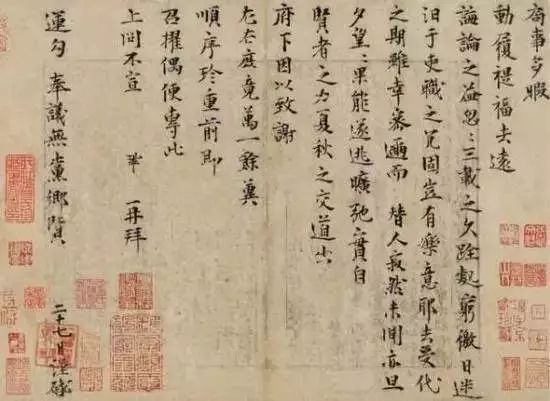 局事多暇
動履禔福去遠
誨論之益忽忽三載之久跧處窮徼日迷
汨于吏職之冗固豈有樂意耶去受代
之期雖幸密邇而替人寂然未聞亦旦
夕望望果能遂逃曠弛實自
賢者之力夏秋之交道出
府下因以致謝
左右庶竟萬一餘冀
順序珍重前即
召擢偶便專此
上問不宣 鞏再拜
運勾奉議無黨鄉賢
二十七日謹啓